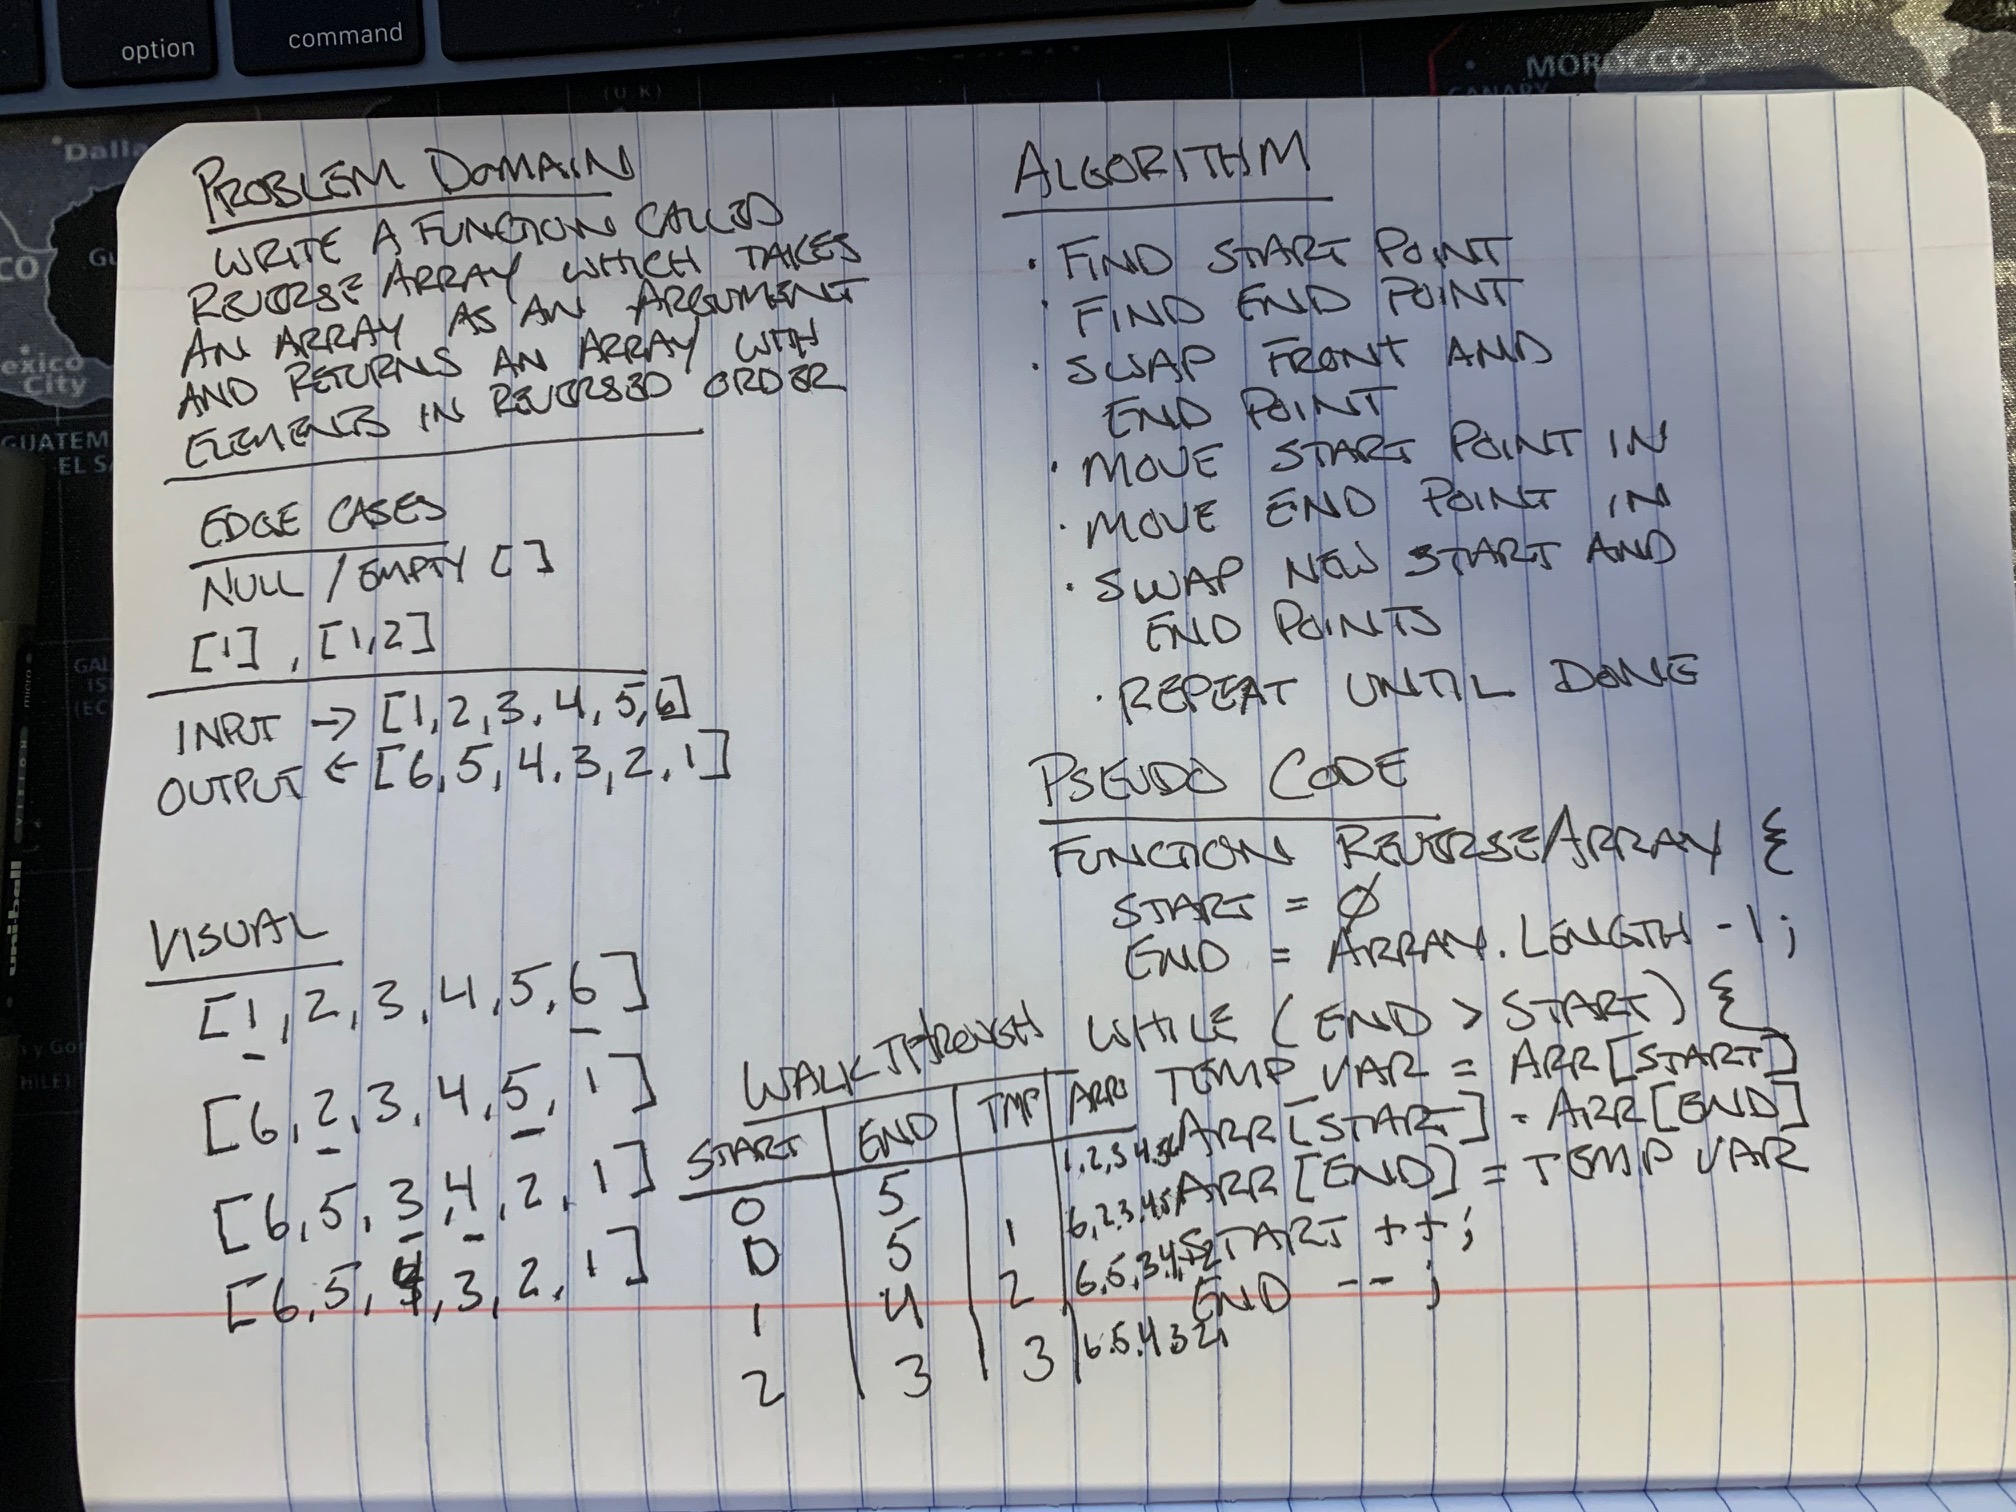 PROBLEM DOMAIN
WRITE A FUNCTION CALLED
REVERSE ARRAY WHICH TAKES
AN ARRAY AS AN ARGUMENT
AND RETURNS AN ARRAY WITH
ELEMENTS IN REVERSED ORDER
EDGE CASES
NULL / EMPTY [ ]
[1], [1,2]
INPUT → [1,2,3,4,5,6]
OUTPUT ← [6,5,4,3,2,1]
VISUAL
[1,2,3,4,5,6]
[6,2,3,4,5,1]
[6,5,3,4,2,1]
[6,5,4,3,2,1]
WALK THROUGH
START | END | TMP | ARR
0 5
0 5 1
1 4 2
2 | 3 | 3
ALGORITHM
· FIND START POINT
· FIND END POINT
· SWAP FRONT AND
END POINT
· MOVE START POINT IN
· MOVE END POINT IN
· SWAP NEW START AND
END POINTS
· REPEAT UNTIL DONE
PSEUDO CODE
FUNCTION REVERSEARRAY {
START = 0
END = ARRAY.LENGTH -1;
WHILE (END > START) {
TEMP VAR = ARR[START]
ARR[START] = ARR[END]
ARR[END] = TEMP VAR
START ++;
END --;
option
command
uni-ball VISION micro
exico
City
GUATEM
EL S
MOROCCO